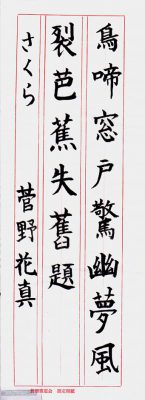 鳥啼窓戸驚幽夢風
裂芭蕉失舊題
さくら 菅野花真